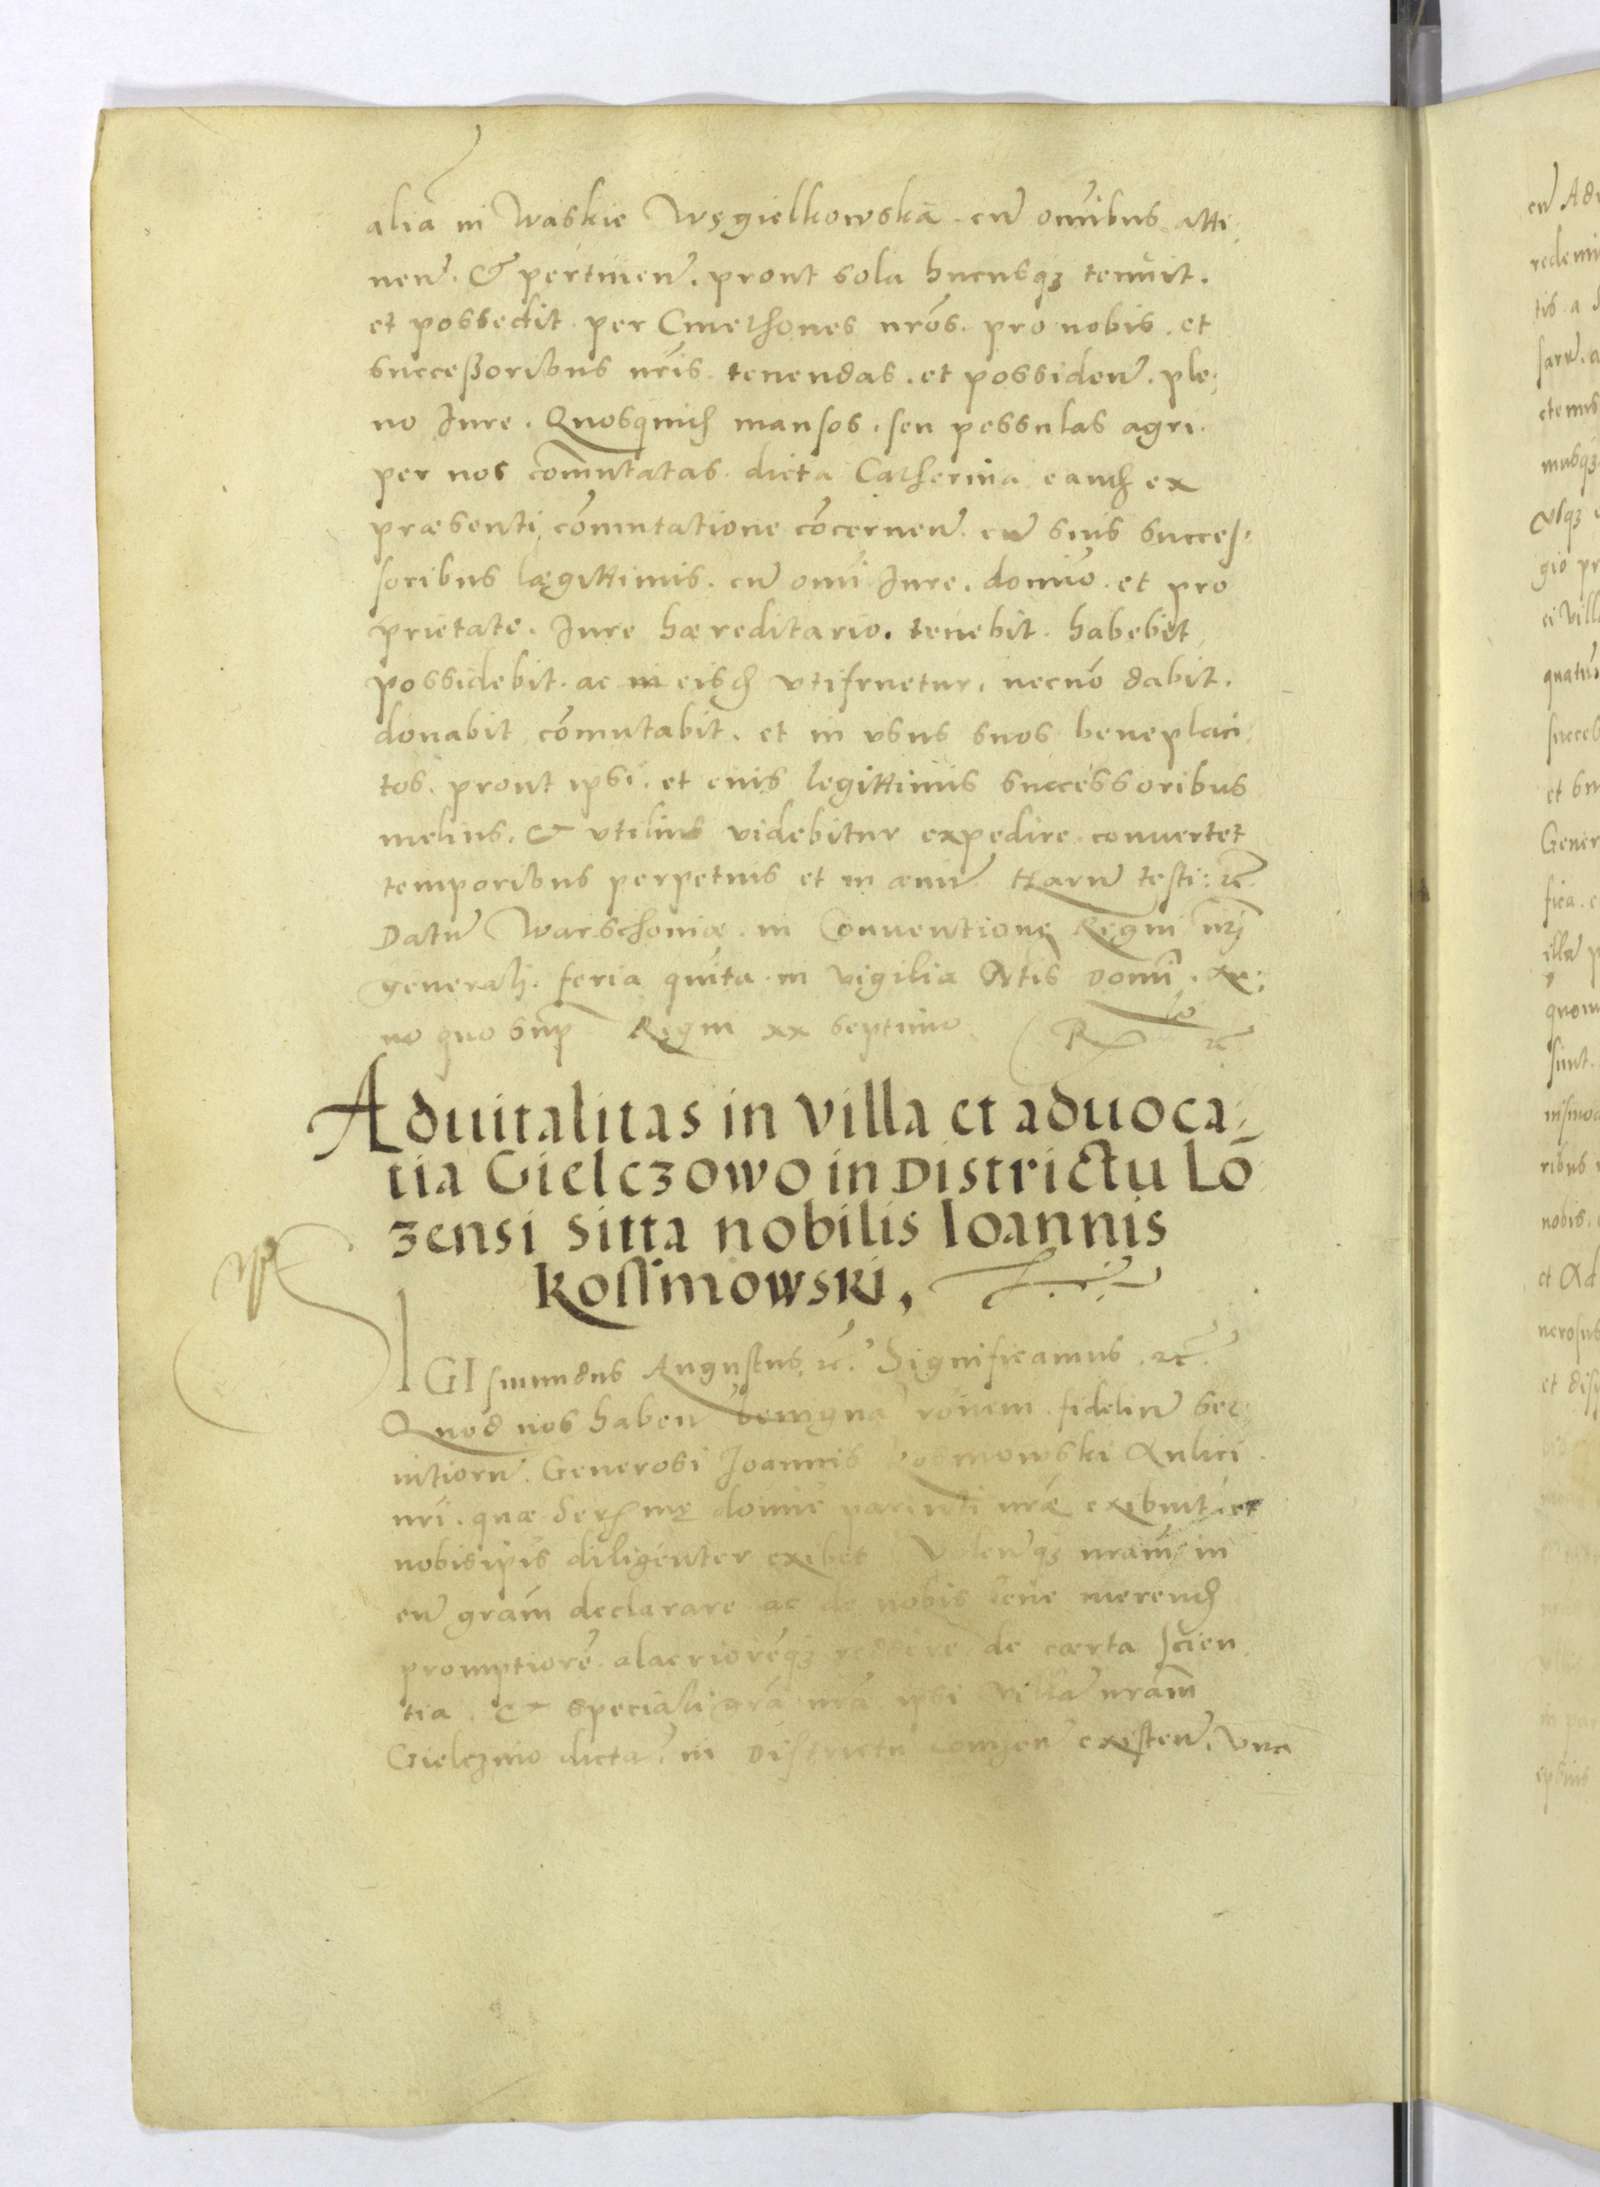 alia in Waskie Węgielkowska cu̅ om̅ibus atti,
nen̅. & pertinen̅. prout sola hucusqꝫ tenuit.
et possedit per Cmethones nr̅os. pro nobis. et
successoribus nr̅is tenendas. et possiden̅. ple,
no Iure. Quosquid̅ mansos. seu pessulas agri.
per nos com̅utatas dicta Catherina eand̅ ex
præsenti com̅utatione co̅cernen̅ cu̅ suis succes,
soribus lægittimis. cu̅ om̅i Iure. domi̅o et pro
prietate. Iure hæreditario. tenebit habebit
possidebit. ac in eisd̅ vtifruetur. necno̅ dabit.
donabit co̅mutabit. et in vsus suos beneplaci
tos. prout ipsi. et eius legittimis successoribus
melius. & vtilius videbitur expedire conuertet
temporibus perpetuis et in æuu̅ Haru̅ testi: ꝛc̅
Datu̅ Warschouiæ in Conuentione Regni nr̅i
generali. feria quinta in vigilia Nt̅is Domi̅.
no quo sup̅ Regni xx septimo R ꝛc̅
Aduitalitas in villa et aduoca,
tia Gielczowo in Districtu Lo̅
zensi sitta nobilis Ioannis
Kossmowski,
IGIsmundus Augustus ꝛc̅. Significamus. ꝛc̅.
Quod nos haben̅ benigna̅ ro̅nem fideliu̅ ser,
uitioru̅. Generosi Ioannis Kosmowski Aulici
nr̅i. quæ domi̅e parenti nr̅æ exibuit. et
nobisip̅is diligenter exibet Volen̅qꝫ nra̅m in
eu̅ gra̅m declarare ac de nobis bene merend̅
promptiore̅ alacriore̅qꝫ reddere de cærta scien
tia. & speciali gr̅a nr̅a ipsi villa̅ nra̅m
dicta̅. in Districtu Lomzen̅ existen̅. vna